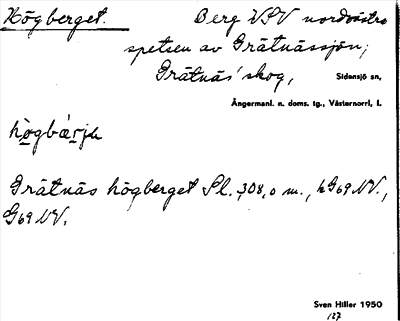 Högberget. Berg VSV nordvästra
spetsen av Grätnässjön;
Grätnäs' skog, Sidensjö sn,
Ångermanl. n. doms. tg., Västernorrl, l.
hògbær̀je
Grätnäs högberget Pl. 308,0 m., kG69NV.,
G69NV.
Sven Hiller 1950
127